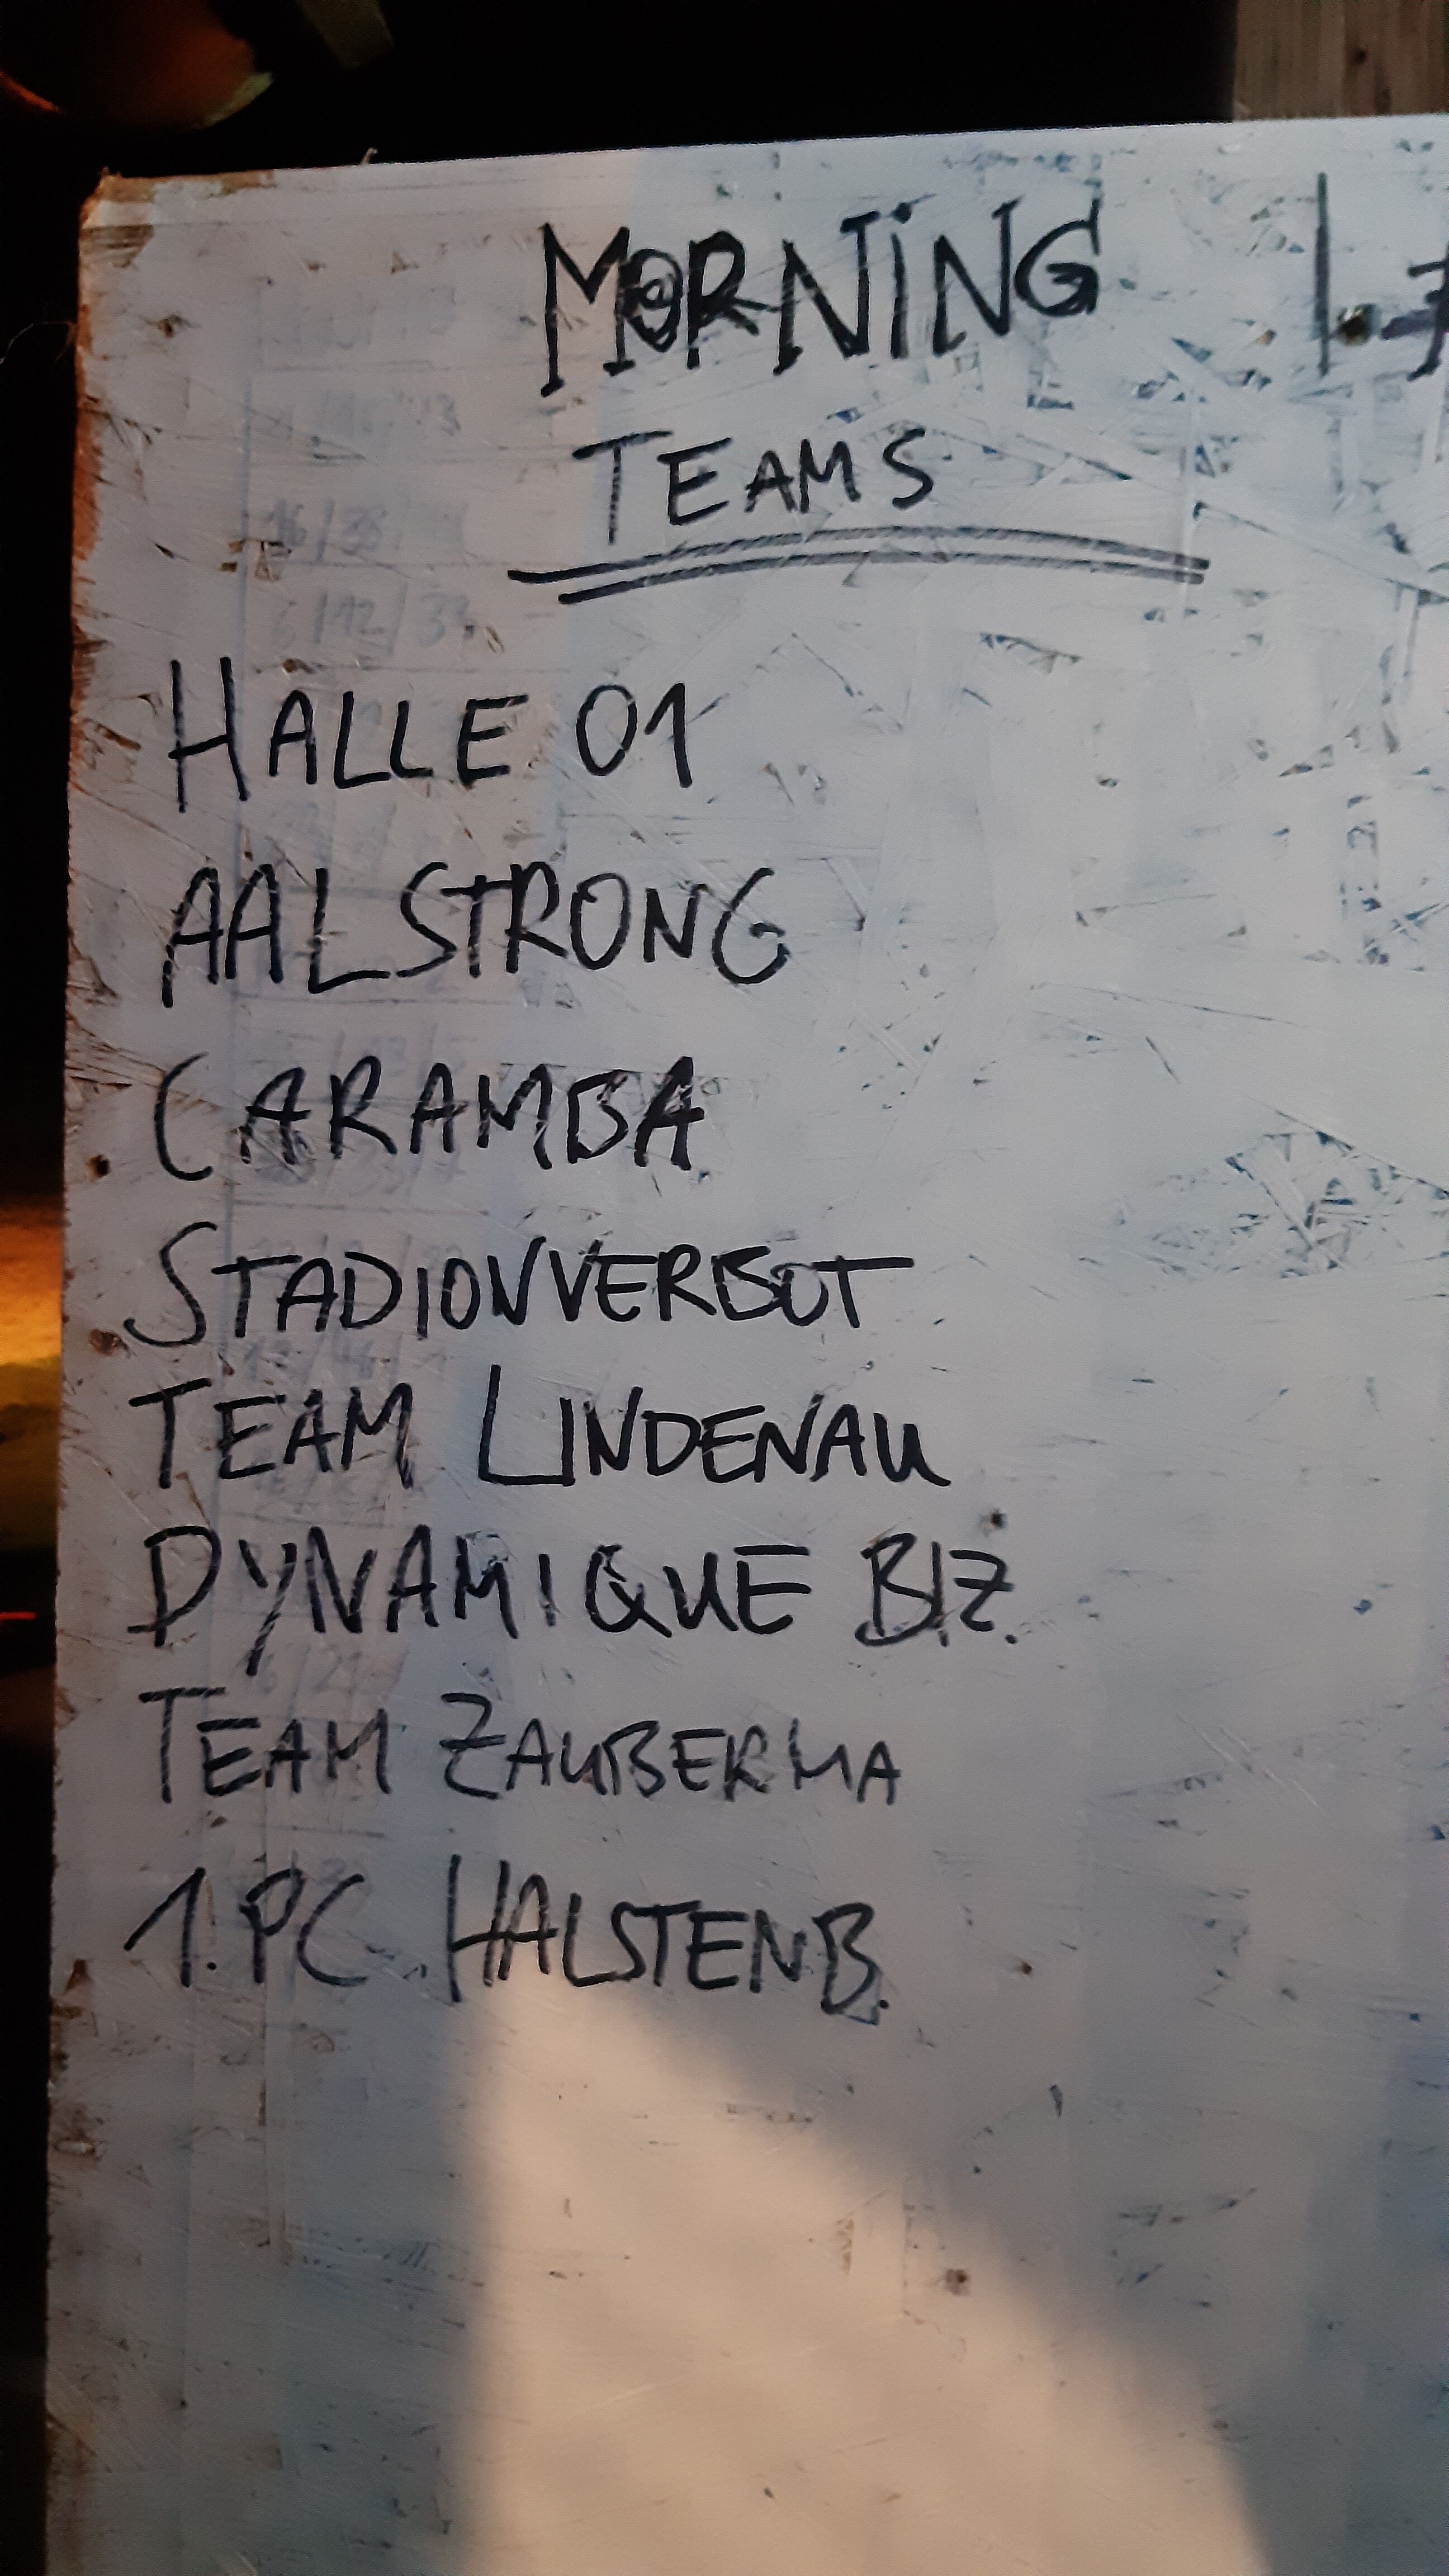 MORNING
TEAMS
HALLE 01
AALSTRONG
CARAMBA
STADIONVERBOT
TEAM LINDENAU
DYNAMIQUE BIZ.
TEAM ZAUBERMA
1.PC HALSTENB.